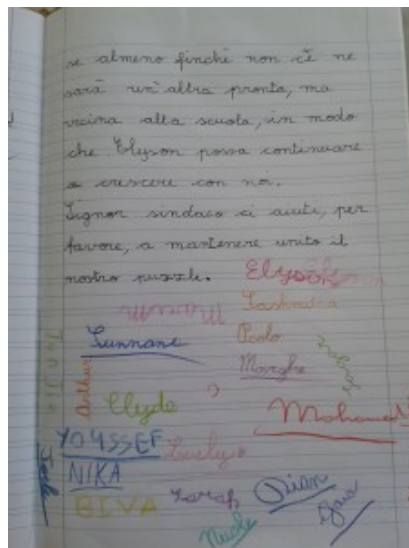 se almeno finché non c'è ne
sarà un'altra pronta, ma
vicina alla scuola, in modo
che Elyson possa continuare
a crescere con noi.
Signor sindaco ci aiuti, per
favore, a mantenere unito il
nostro puzzle.
Elyson
Sunnane
Paolo
Marghe
Arthur
Clyde
Mohamed
YOUSSEF
NIKA
BIVA
Sarah
Dian
Nicole